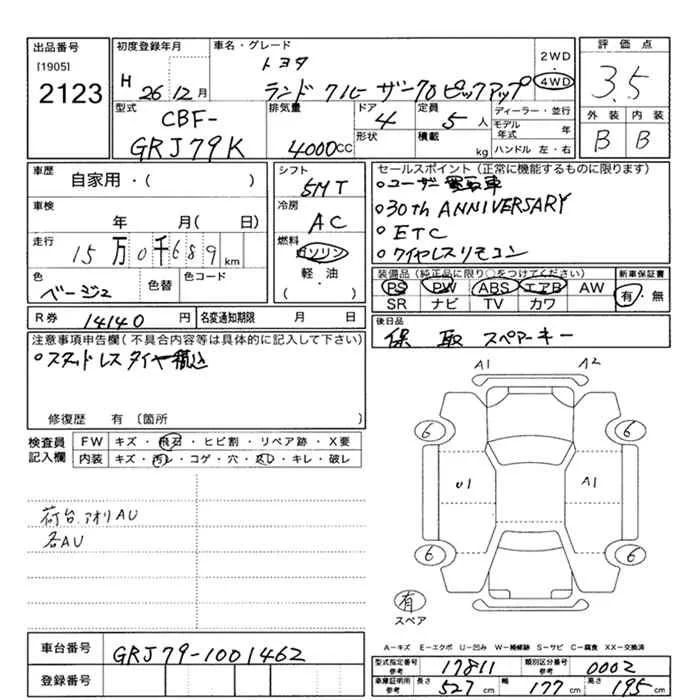 出品番号
[1905]
2123
初度登録年月
H 26 12 月
車名・グレード
トヨタ
ランドクルーザー70 ピックアップ
2WD
・
4WD
評価点
3.5
外装 内装
B B
型式
CBF-
GRJ79K
排気量
4000cc
ドア
4
形状
定員
5 人
積載
kg
ディーラー・並行
モデル年式 年
ハンドル 左・右
車歴
自家用・( )
車検
年 月( 日)
走行
15万0千689 km
色
ベージュ
色替
色コード
シフト
5MT
冷房
AC
燃料
ガソリン
軽・油
( ・ )
セールスポイント(正常に機能するものに限ります)
○ユーザー買取車
○30th ANNIVERSARY
○ETC
○ワイヤレスリモコン
装備品(純正品に限り○をつけてください)
PS PW ABS エアB AW
SR ナビ TV カワ
新車保証書
有・無
R券 14140 円
名変通知期限 月 日
後日品
保 取 スペアーキー
注意事項申告欄(不具合内容等は具体的に記入して下さい)
○スタッドレスタイヤ積込
修復歴 有〔箇所 〕
検査員記入欄
FW キズ・飛石・ヒビ割・リペア跡・X要
内装 キズ・汚レ・コゲ・穴・スレ・キレ・破レ
荷台.アオリAU
各AU
A1 A2
6 6
U1 A1
6 6
有
スペア
車台番号 GRJ79-1001462
登録番号
A-キズ E-エクボ U-凹み W-補修跡 S-サビ C-腐食 XX-交換済
型式指定番号 参考 17811
類別区分番号 参考 0002
車庫証明用 参考 長さ 527 cm 幅 177 cm 高さ 195 cm